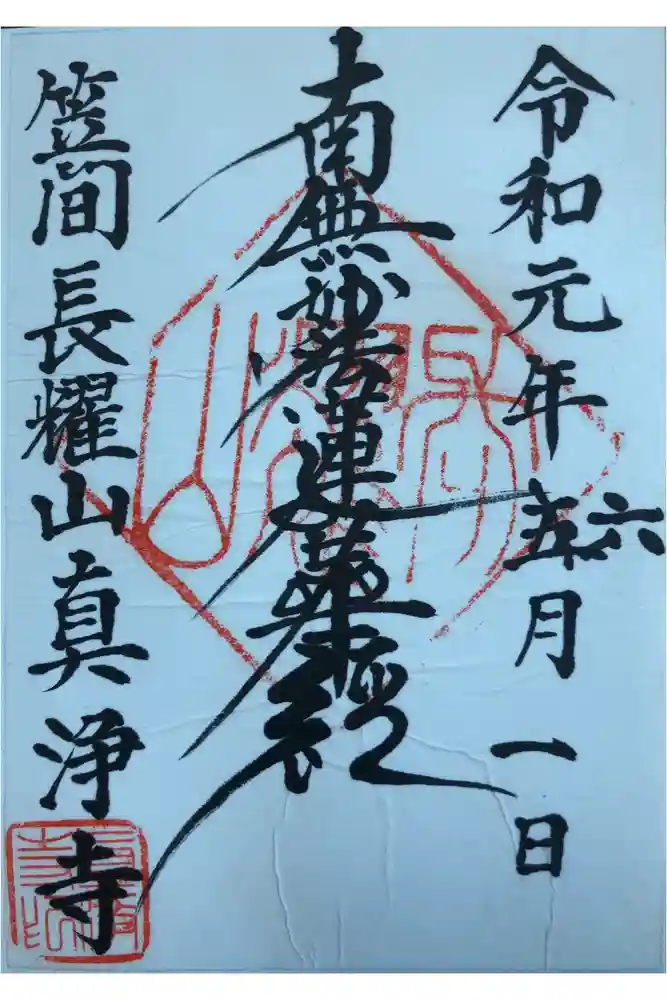 令和元年五六月一日
南無妙法蓮華経
笠間長耀山真浄寺